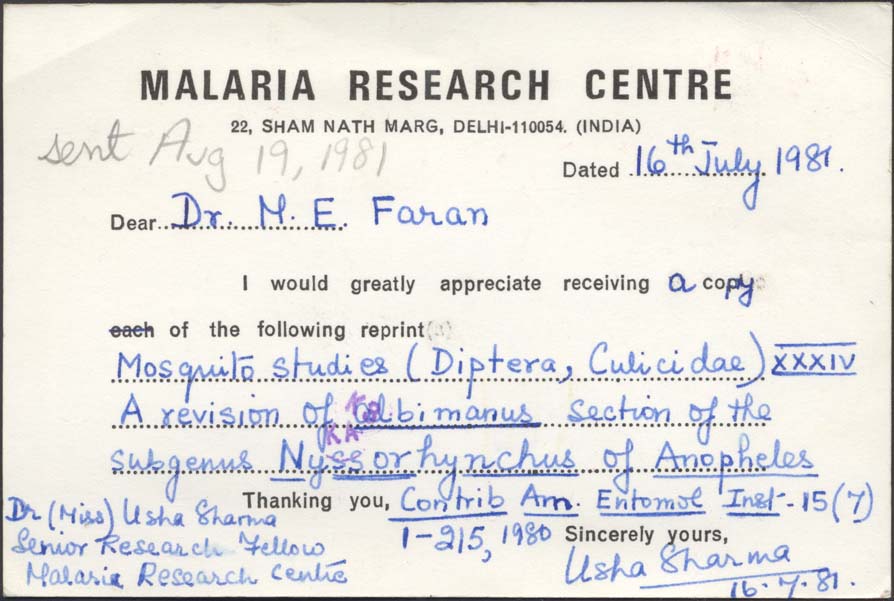 MALARIA RESEARCH CENTRE
22, SHAM NATH MARG, DELHI-110054. (INDIA)
sent Aug 19, 1981
Dated 16th July 1981.
Dear Dr. M. E. Faran
I would greatly appreciate receiving a copy
each of the following reprint
Mosquito studies (Diptera, Culicidae) XXXIV
A revision of albimanus section of the
subgenus Nyssorhynchus of Anopheles
Thanking you, Contrib Am. Entomol Inst-15(7)
1-215, 1980 Sincerely yours,
Usha Sharma
16.7.81.
Dr (Miss) Usha Sharma
Senior Research Fellow
Malaria Research Centre